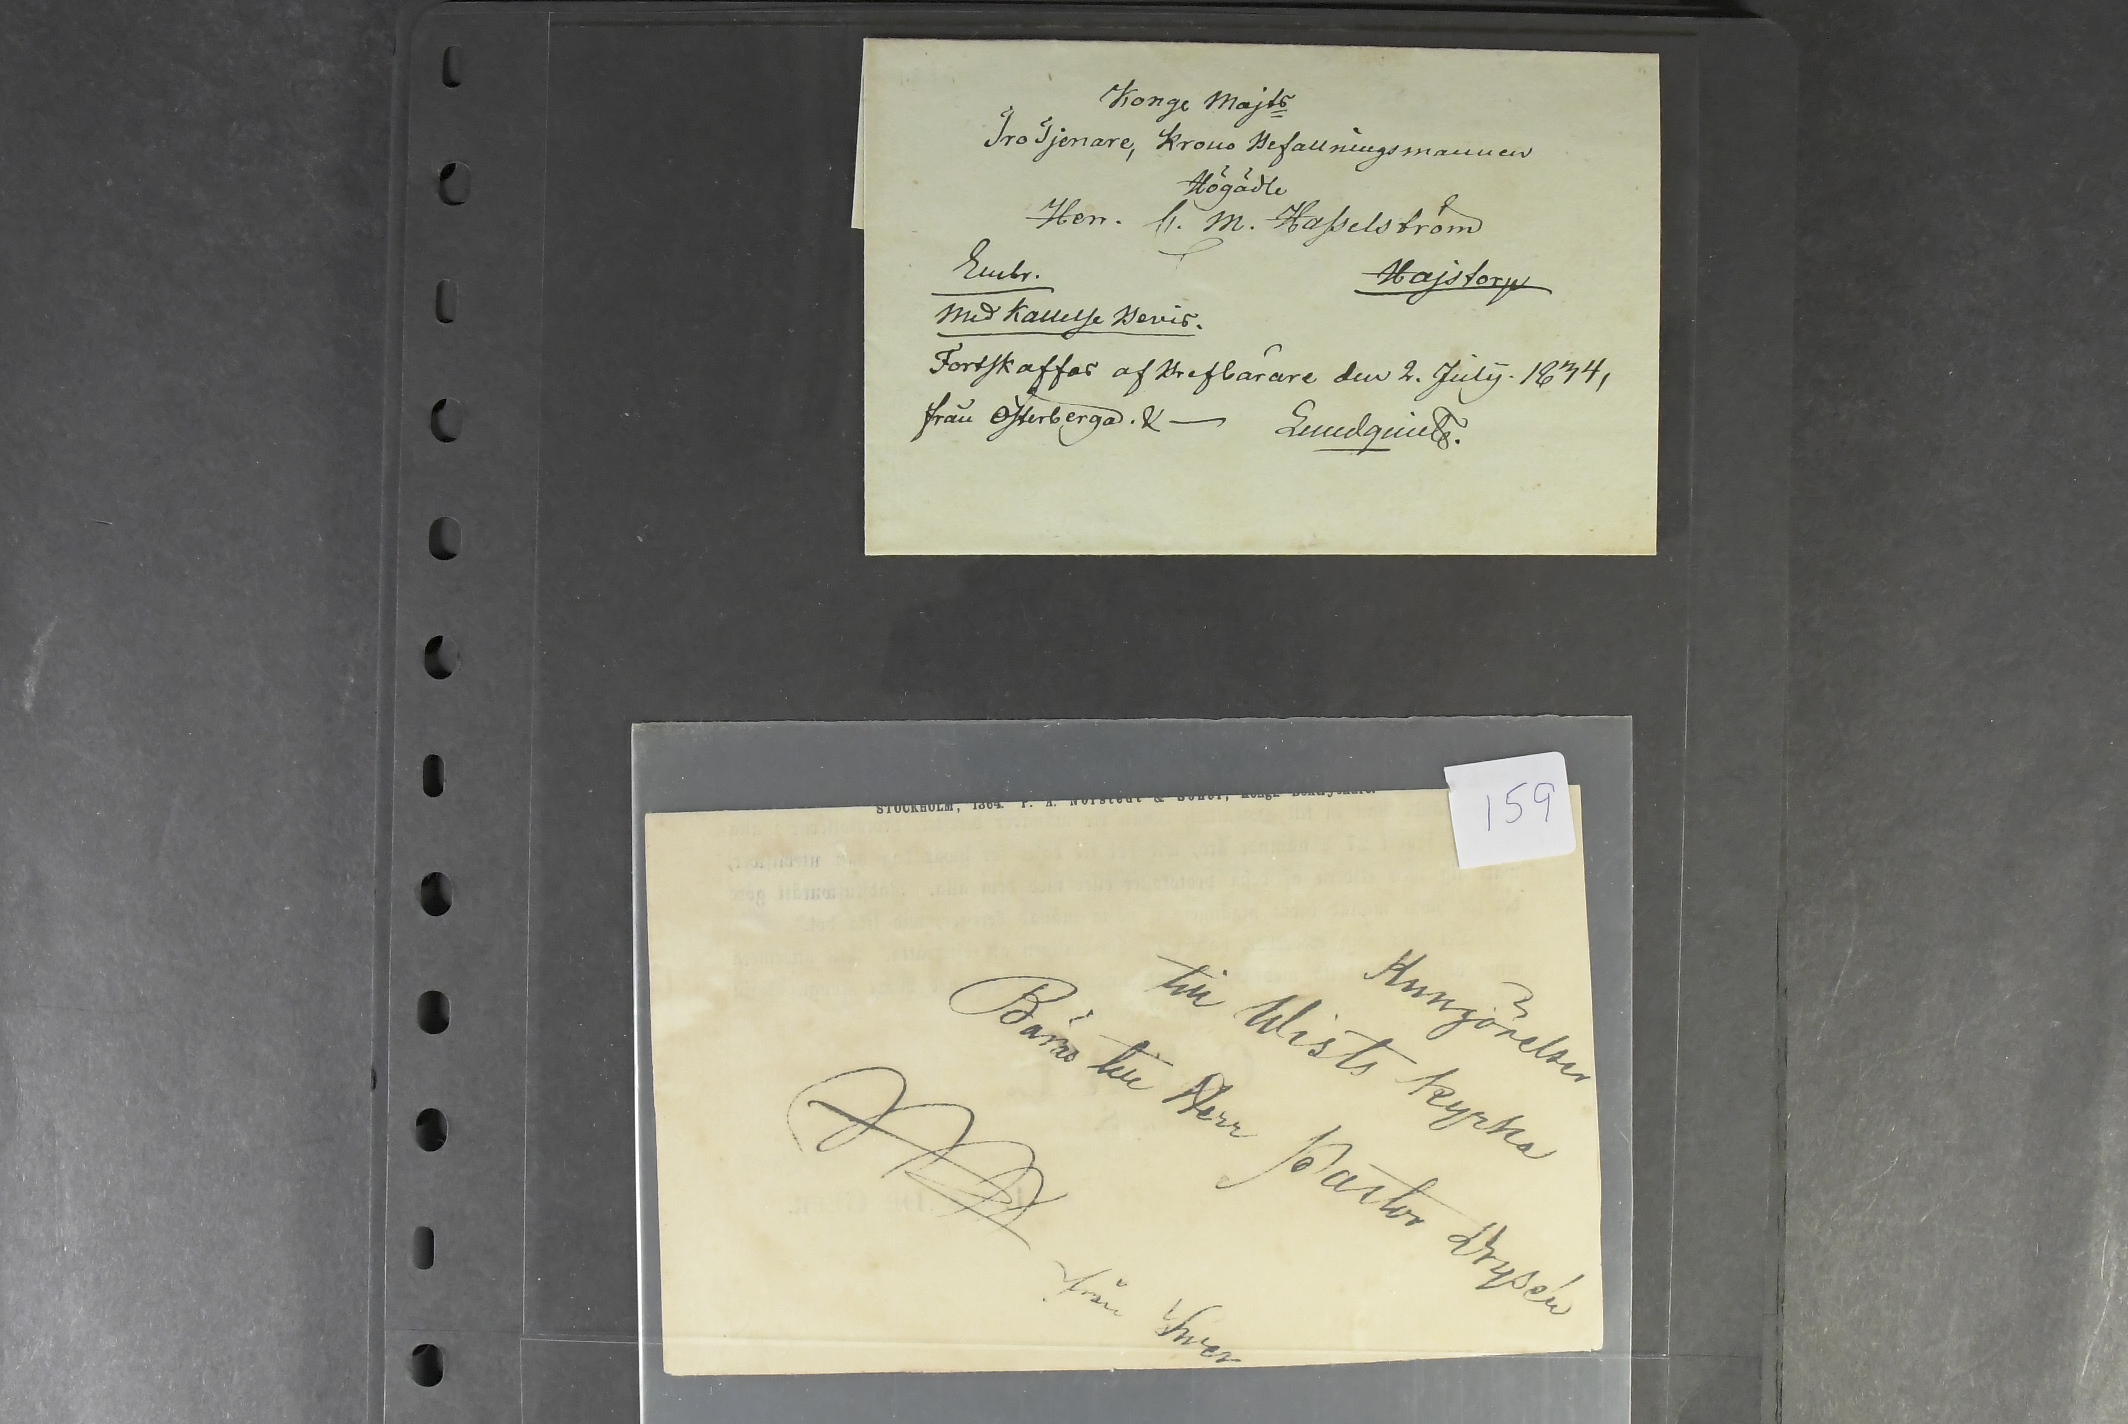 Konge Majts
Tro Tjenare, Krono Befallningsmannen
Högädle
Herr. C. M. Hasselström
Embr. Hajstorp
Med Kallelse Bevis.
Fortskaffas af Brefbärare den 2. July. 1834,
från Österberga. K — Lundquist.
159
STOCKHOLM, 1864. P. A. Norstedt & Söner, Kongl. Boktryckare.
Kungörelser
till Wists kyrka
Bäres till Herr Pastor Drysén
från